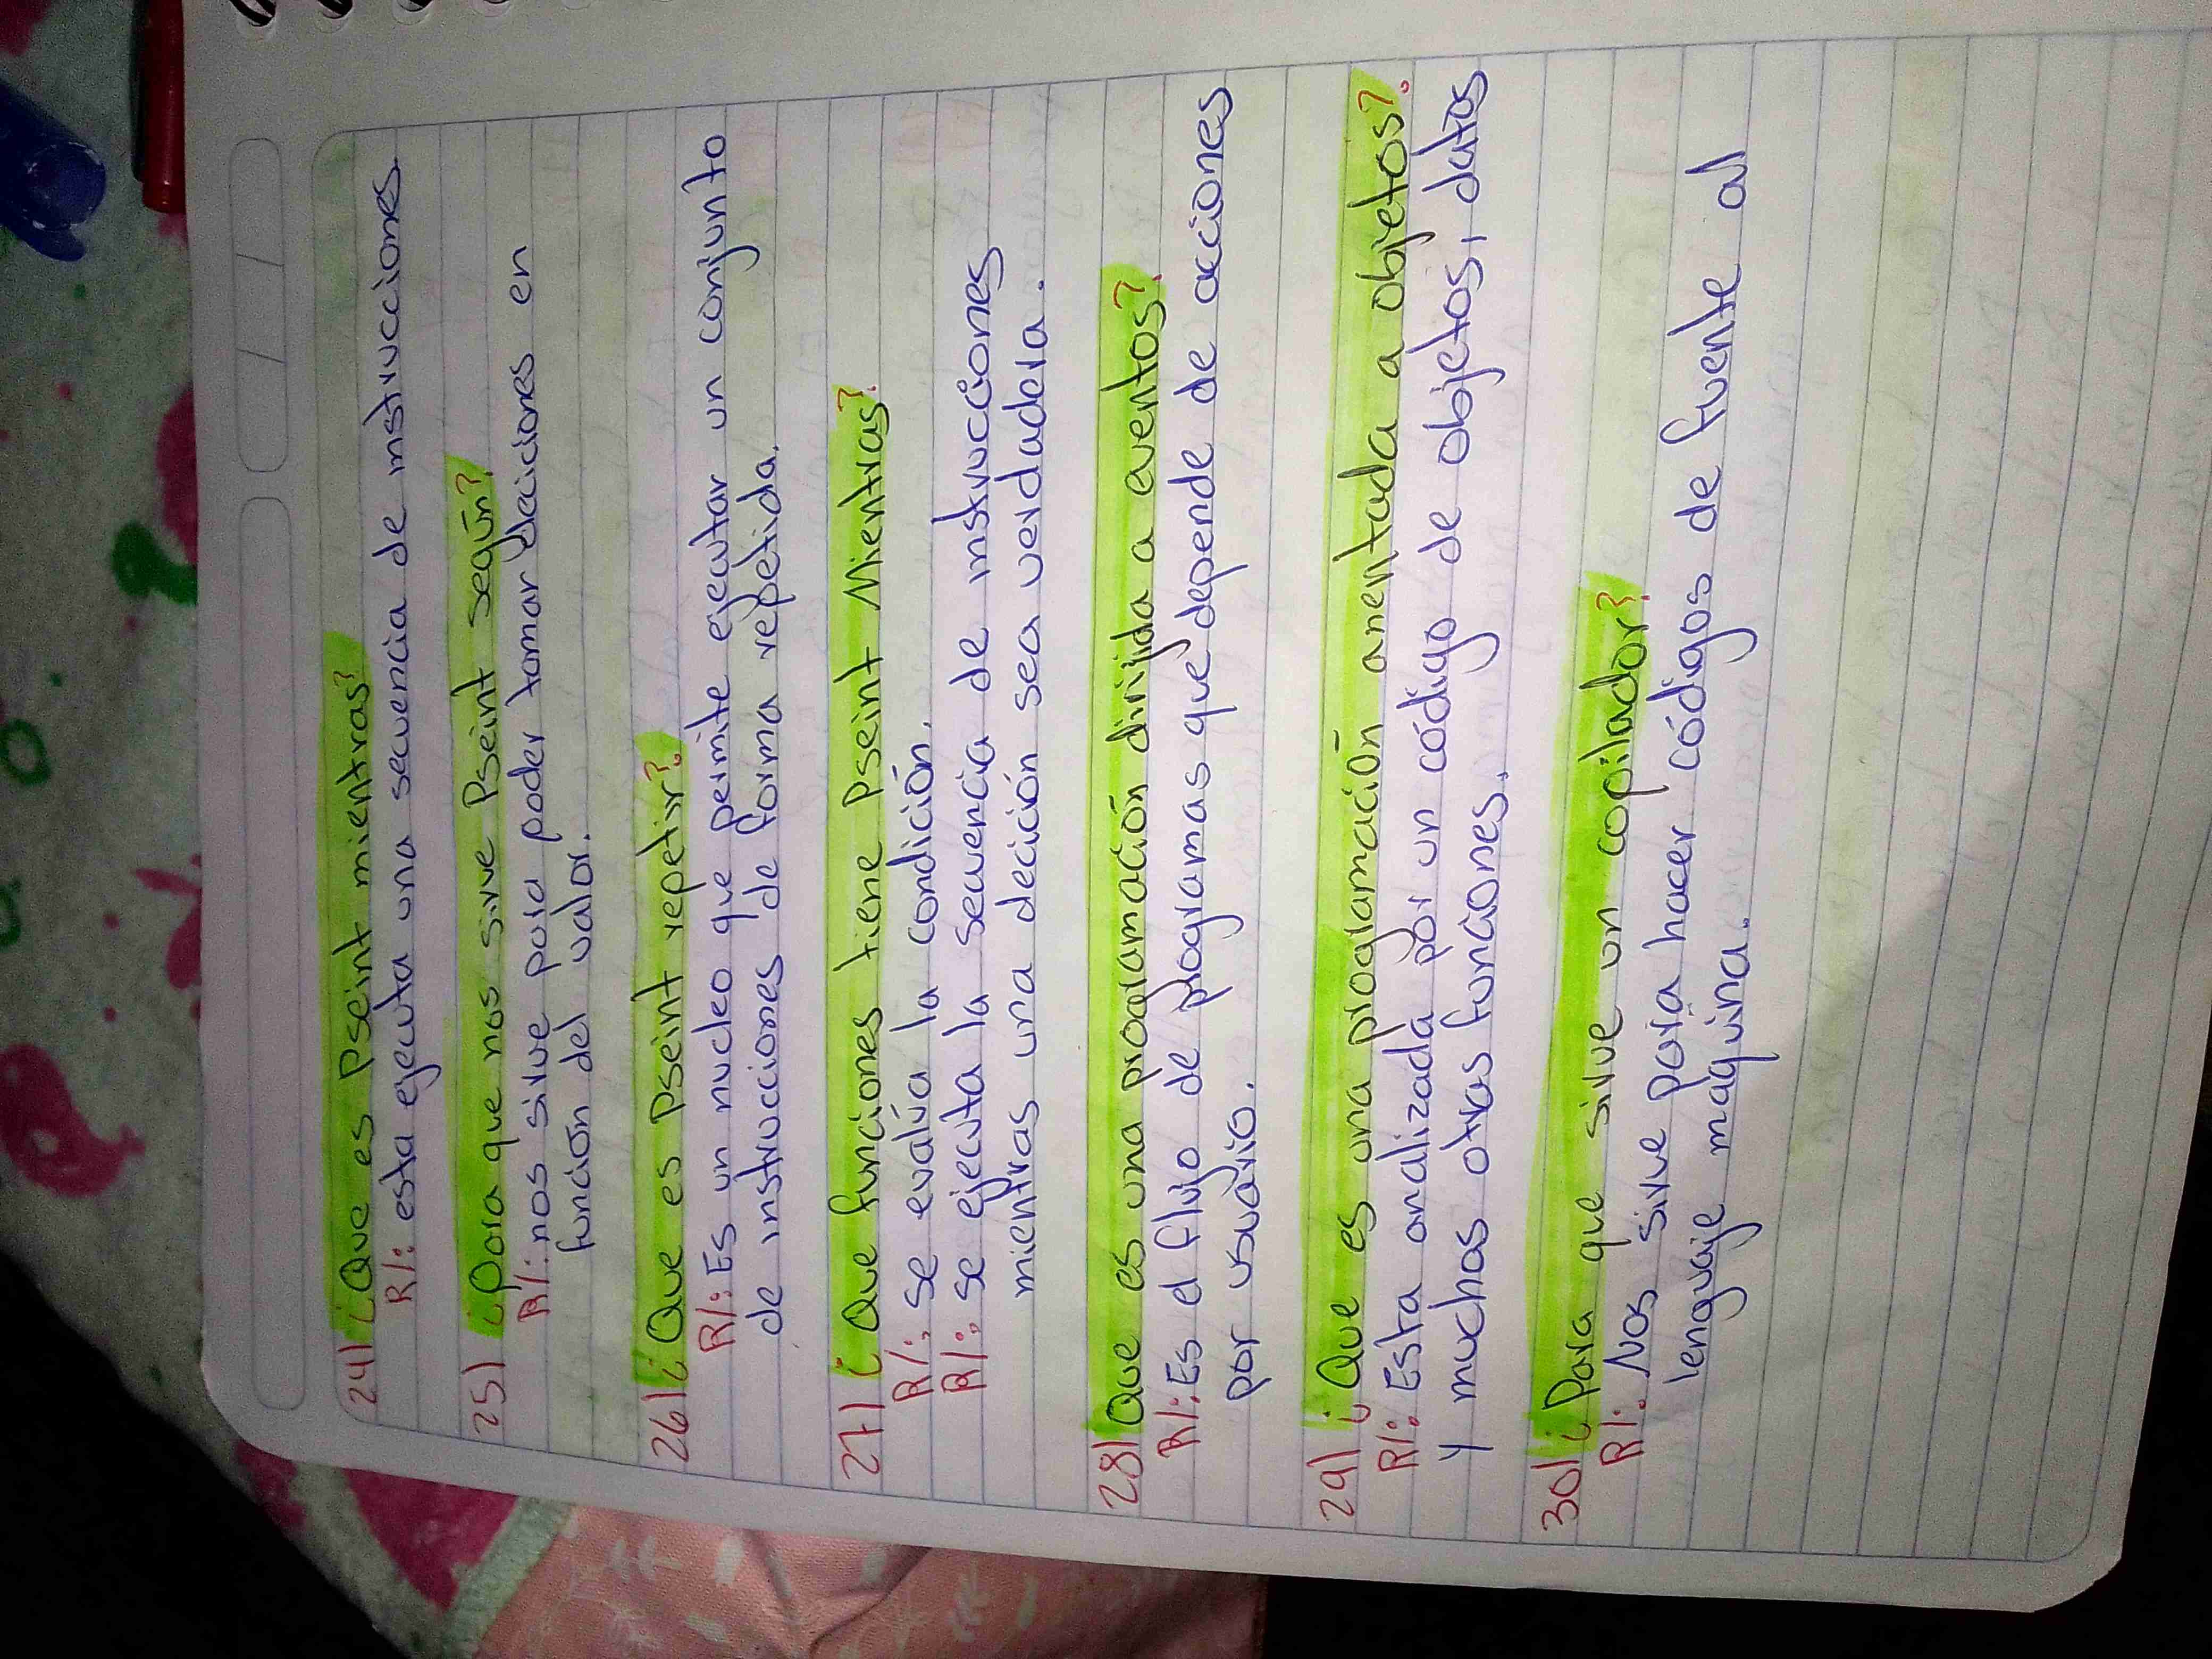 24) ¿Que es Pseint mientras?
R/: esta ejecuta una secuencia de instrucciones
25) ¿para que nos sirve Pseint según?
R/: nos sirve para poder tomar deciciones en
función del valor.
26) ¿Que es Pseint repetir?
R/: Es un nucleo que permite ejecutar un conjunto
de instrucciones de forma repetida.
27) ¿Que funciones tiene pseint Mientras?
R/: se evalúa la condición.
R/: se ejecuta la secuencia de instrucciones
mientras una decición sea verdadera.
28) Que es una programación dirijida a eventos?
R/: Es el flujo de programas que depende de acciones
por usuario.
29) ¿Que es una programación orientada a objetos?
R/: Esta analizada por un código de objetos, datos
y muchas otras funciones.
30) ¿Para que sirve un copilador?
R/: Nos sirve para hacer códigos de fuente al
lenguaje maquina.